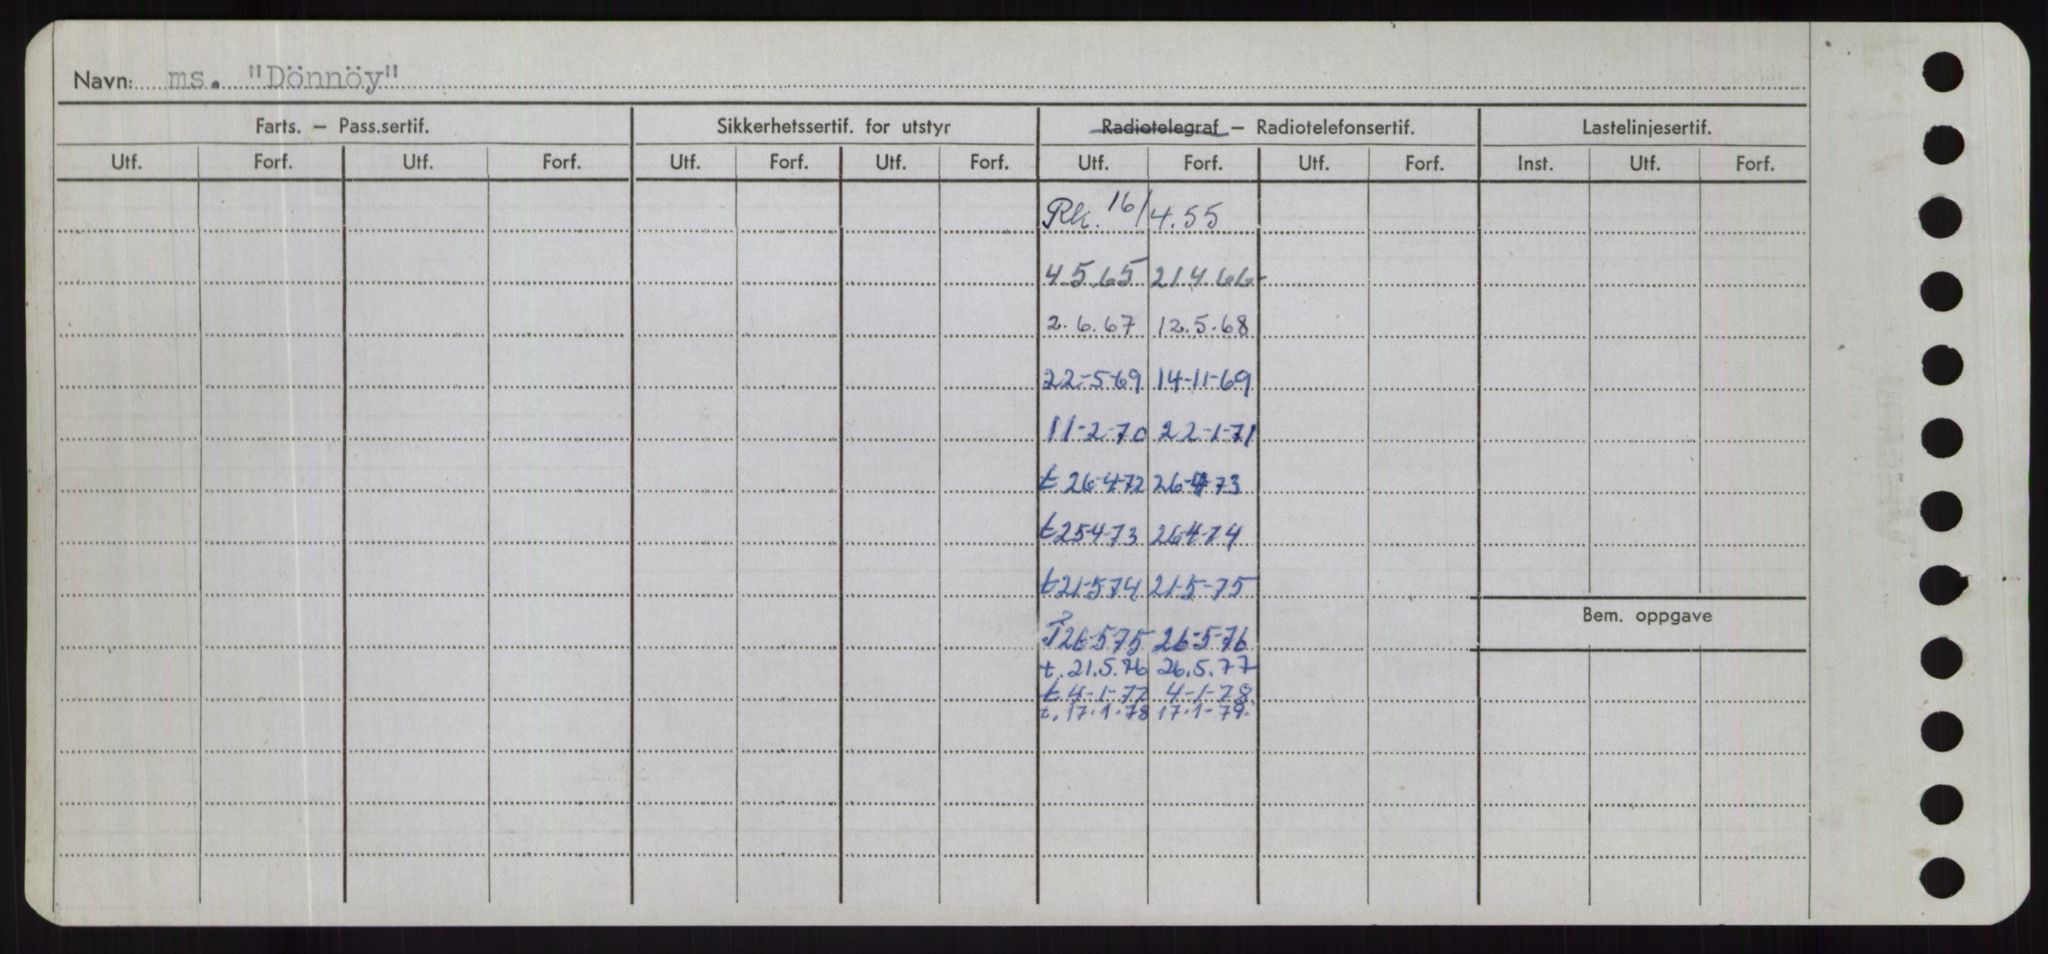 Navn: ms. "Dönnöy"
Farts. – Pass.sertif. Sikkerhetssertif. for utstyr Radiotelegraf – Radiotelefonsertif. Lastelinjesertif.
Utf. Forf. Utf. Forf. Utf. Forf. Utf. Forf. Utf. Forf. Utf. Forf. Inst. Utf. Forf.
Rk. 16/4.55
4.5.65 21.4.66
2.6.67 12.5.68
22-5-69 14-11-69
11-2-70 22-1-71
t 26-4-72 26-4-73
t 25-4-73 26-4-74
t 21-5-74 21-5-75
Bem. oppgave
T 26-5-75 26-5-76
t. 21.5.76 26.5.77
t. 4-1-77 4-1-78
t. 17.1.78 17.1-79.